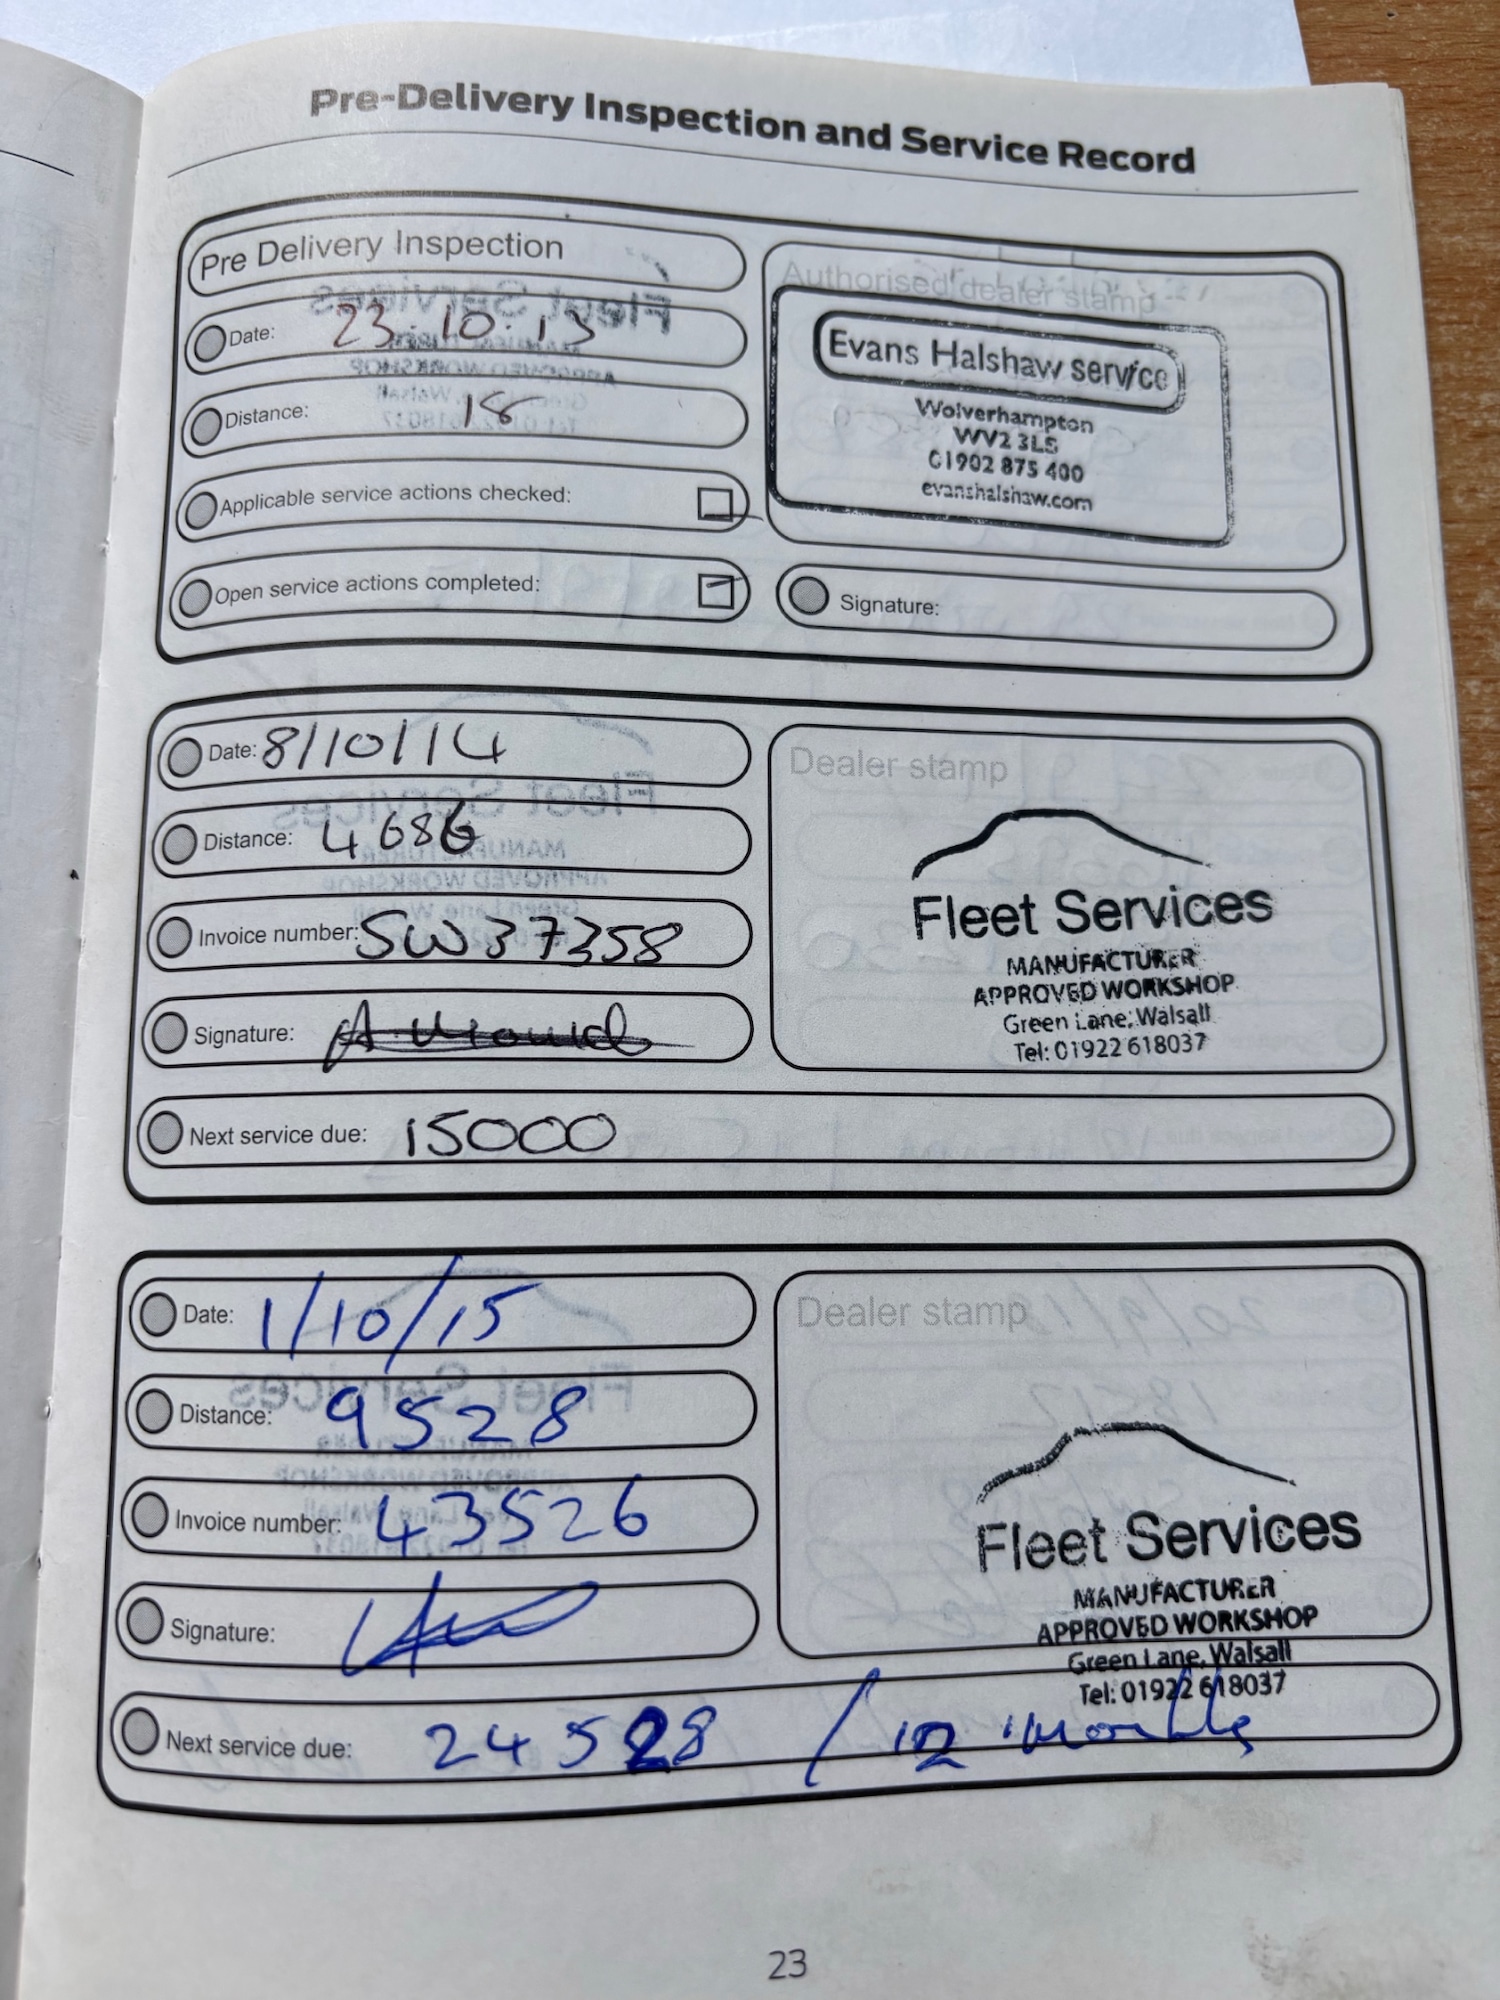 Pre-Delivery Inspection and Service Record
Pre Delivery Inspection
Date: 23.10.13
Distance: 18
Applicable service actions checked:
Open service actions completed:
Authorised dealer stamp
Evans Halshaw service
Wolverhampton
WV2 3LS
01902 875 400
evanshalshaw.com
Signature:
Date: 8/10/14
Distance: 4686
Invoice number: SW37358
Signature:
Next service due: 15000
Dealer stamp
Fleet Services
MANUFACTURER
APPROVED WORKSHOP
Green Lane, Walsall
Tel: 01922 618037
Date: 1/10/15
Distance: 9528
Invoice number: 43526
Signature:
Next service due: 24528 / 12 months
Dealer stamp
Fleet Services
MANUFACTURER
APPROVED WORKSHOP
Green Lane, Walsall
Tel: 01922 618037
23